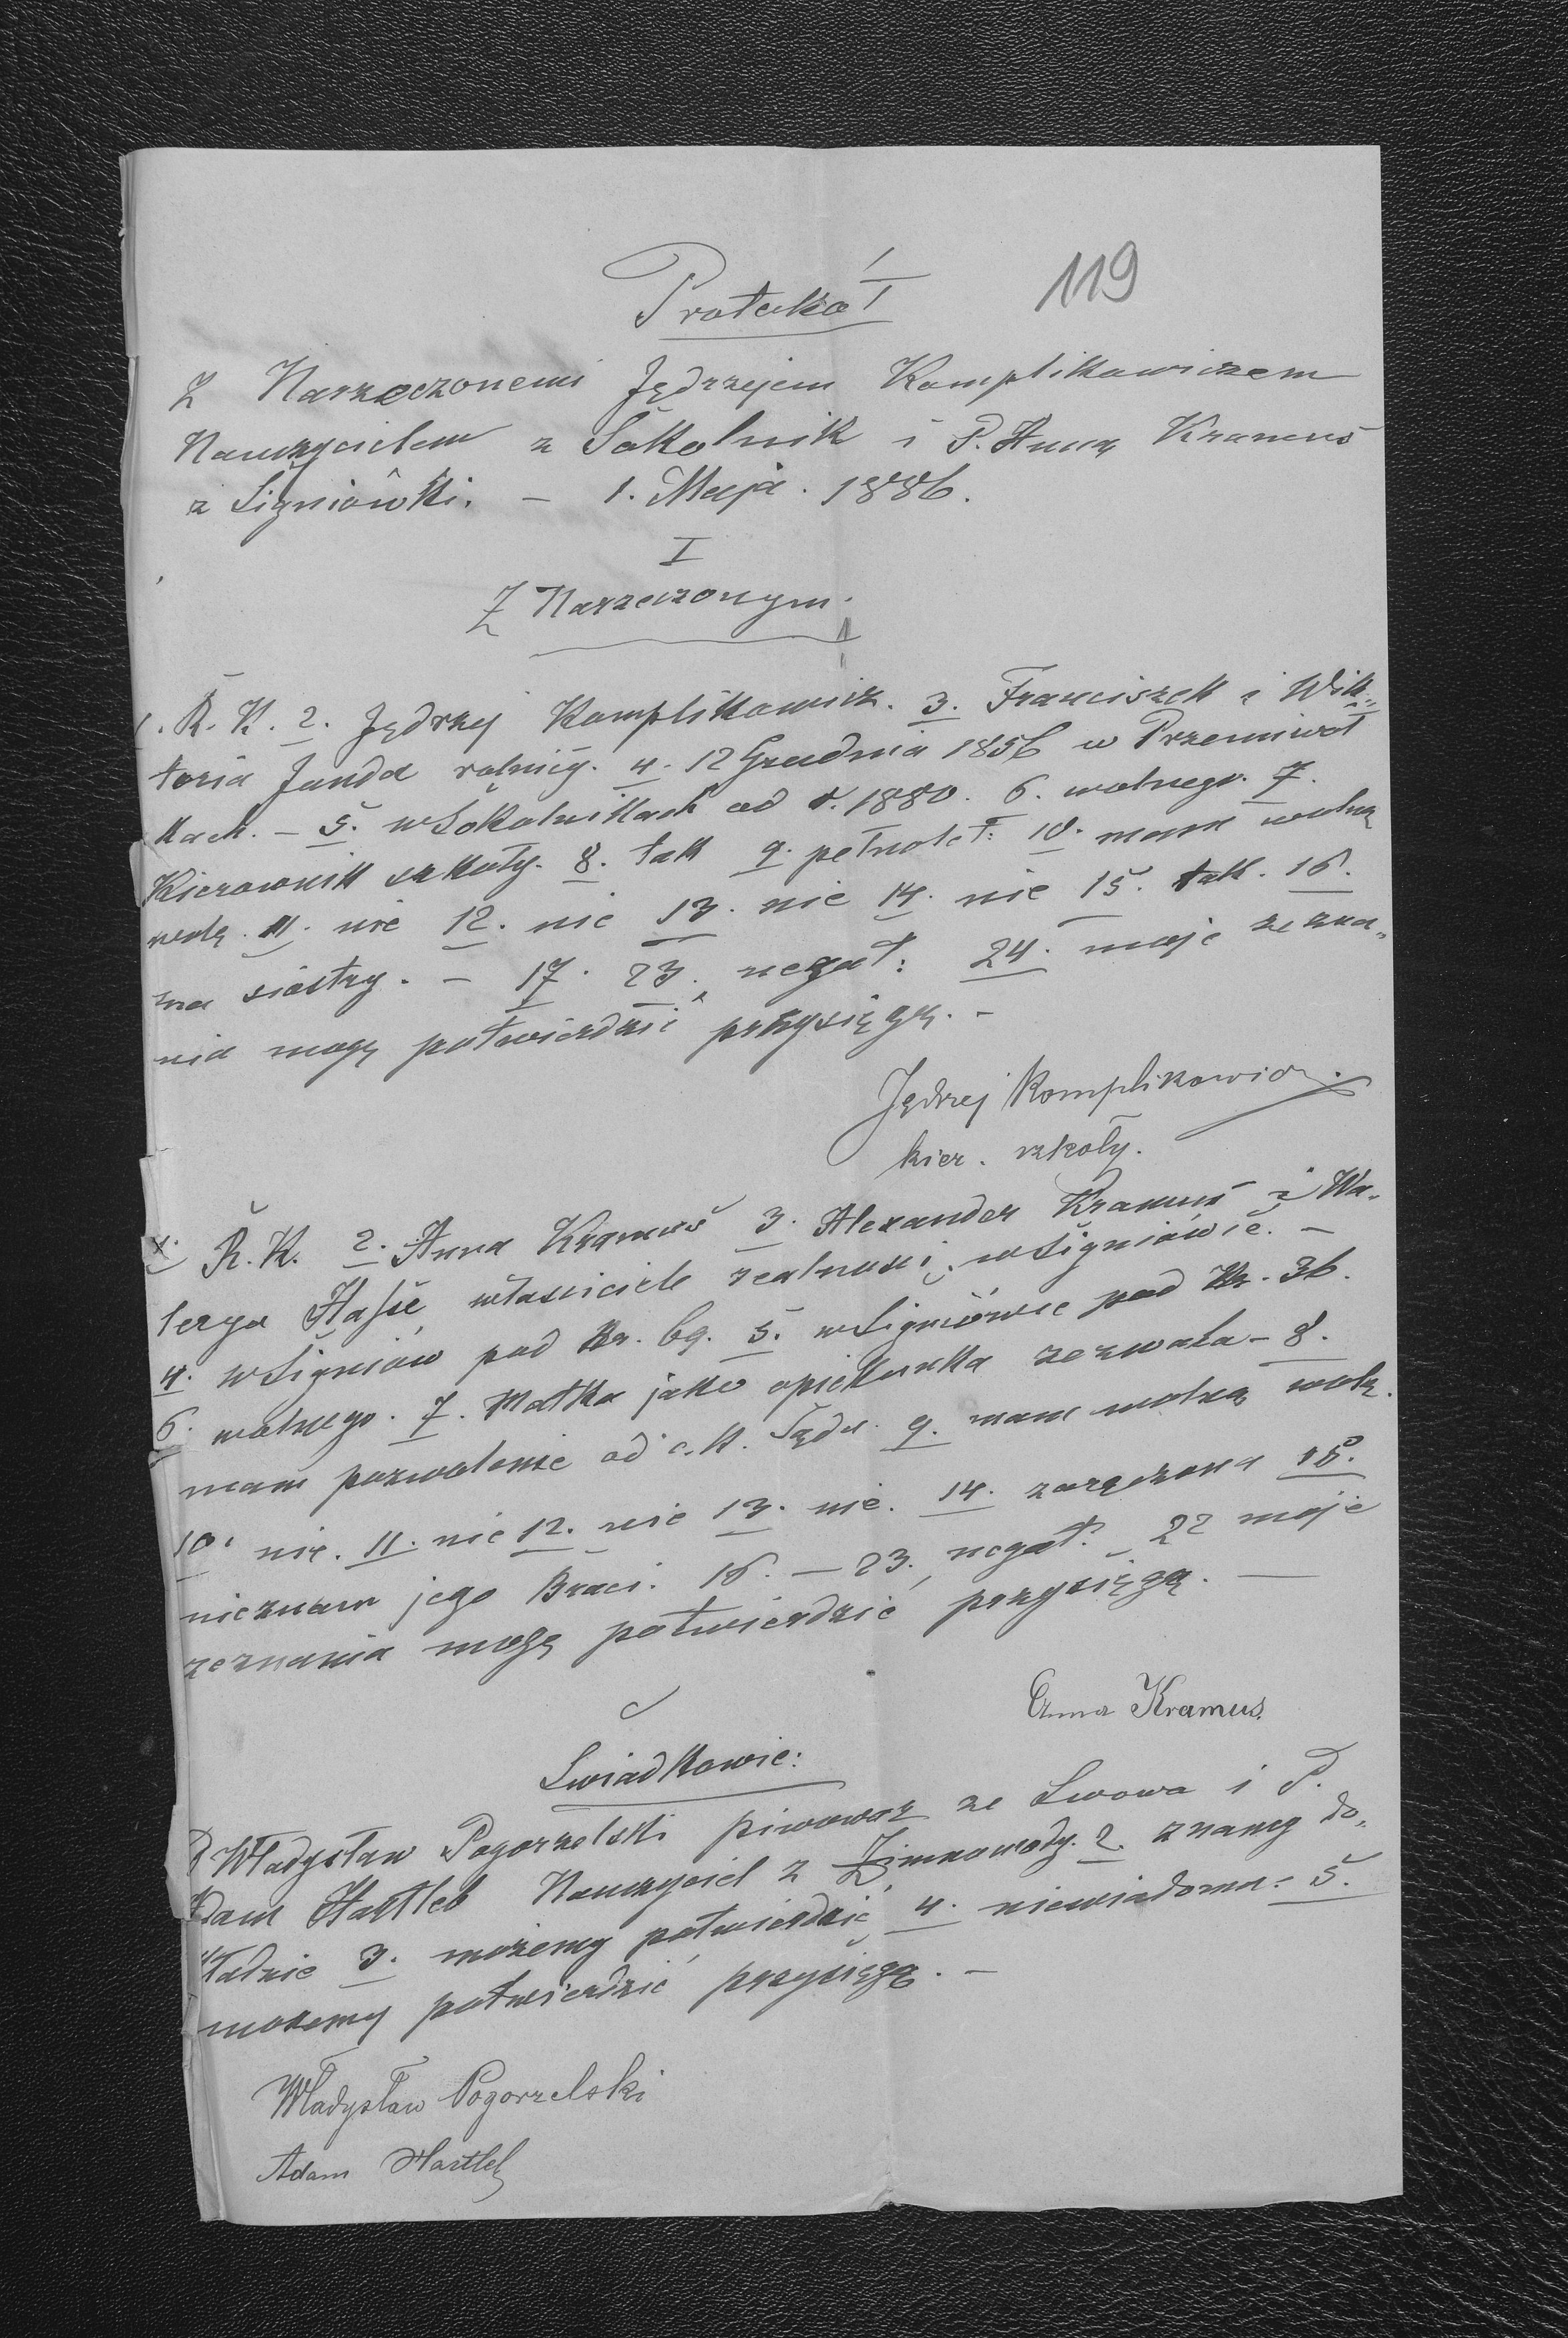 Protokół
119
Z Narzeczonemi Jędrzejem Komplikowiczem
Nauczycielem z Sokolnik i P. Anną Kramus
z Signiówki. – 1. Maja. 1886.
I
Z Narzeczonym.
1. R. K. 2. Jędrzej Komplikowicz. 3. Franciszek i Wik-
toria Janda rolnicy. 4. 12 Grudnia 1856 w Przemiwół
kach. – 5. w Sokolnikach od r. 1880. 6. wolnego. 7.
Kierownik szkoły. 8. tak 9. pełnolet: 10. mam wolną
wolę. 11. nie 12. nie 13. nie 14. nie 15. tak. 16.
zna siostry. – 17. 23. negat: 24. moje zezna-
nia mogę potwierdzić przysięgą. –
Jędrzej Komplikowicz.
kier. szkoły.
1. R. K. 2. Anna Kramus 3. Alexander Kramus i Wa-
lerya Hasse, właściciele realności w Signiówie. –
4. w Signiów pod Nr. 69. 5. w Signiówce pod Nr. 36.
6. wolnego. 7. Matka jako opiekunka zezwala – 8.
mam pozwolenie od c. k. Sądu. 9. mam wolną wolę.
10. nie. 11. nie 12. nie 13. nie. 14. zaręczona 15.
nieznam jego Braci. 16. – 23. negat. 22 moje
zeznania mogę potwierdzić przysięgą. –
Anna Kramus.
Swiadkowie:
P Władysław Pogorzelski piwowar ze Lwowa i P.
Adam Hartleb Nauczyciel z Zimnowody. 2. znamy do-
kładnie 3. możemy potwierdzić 4. niewiadoma. 5.
możemy potwierdzić przysięgą. –
Władysław Pogorzelski
Adam Hartleb